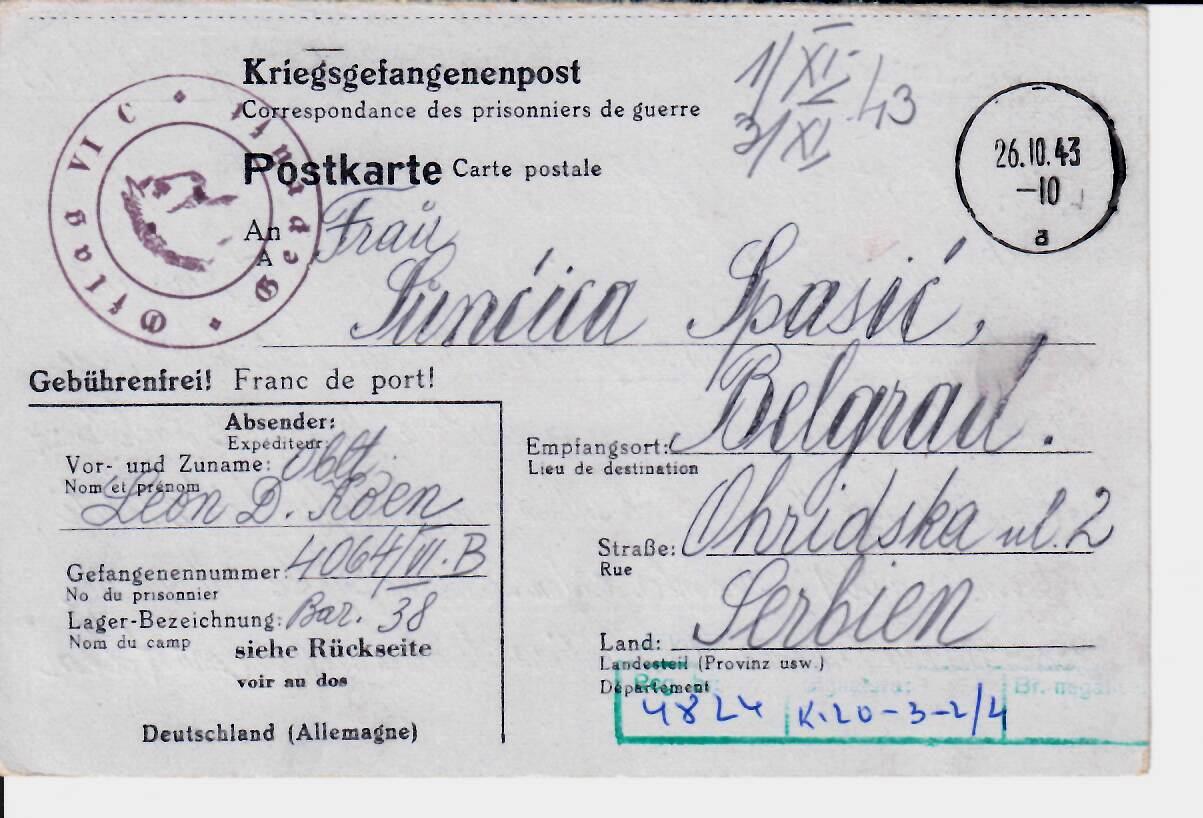 Kriegsgefangenenpost
Correspondance des prisonniers de guerre
1/XI
3/XI 43
Postkarte Carte postale
26.10.43
-10
a
Oflag VI C
An Frau
A
Sunčica Spasić,
Gebührenfrei! Franc de port!
Belgrad.
Empfangsort:
Lieu de destination
Absender:
Expéditeur:
Vor- und Zuname: Oblt.
Nom et prénom
Leon D. Koen
Ohridska ul. 2
Straße:
Rue
Gefangenennummer: 4064/VI.B
No du prisonnier
Lager-Bezeichnung: Bar. 38
Nom du camp
siehe Rückseite
voir au dos
Serbien
Land:
Landesteil (Provinz usw.)
Département
Deutschland (Allemagne)
Reg. br.
Signatura:
Br. nega
4824
K.20-3-2/4